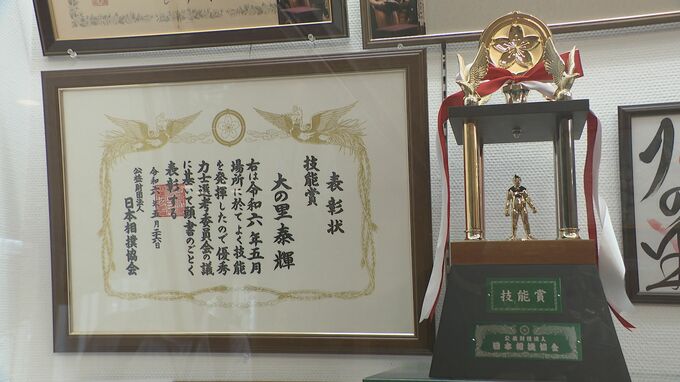 表彰状
技能賞
大の里泰輝
右は令和六年五月
場所に於てよく技能
を発揮したので優秀
力士選考委員会の議
に基いて頭書のごとく
表彰する
令和六年五月二十六日
公益財団法人
日本相撲協会
技能賞
公益財団法人
日本相撲協会